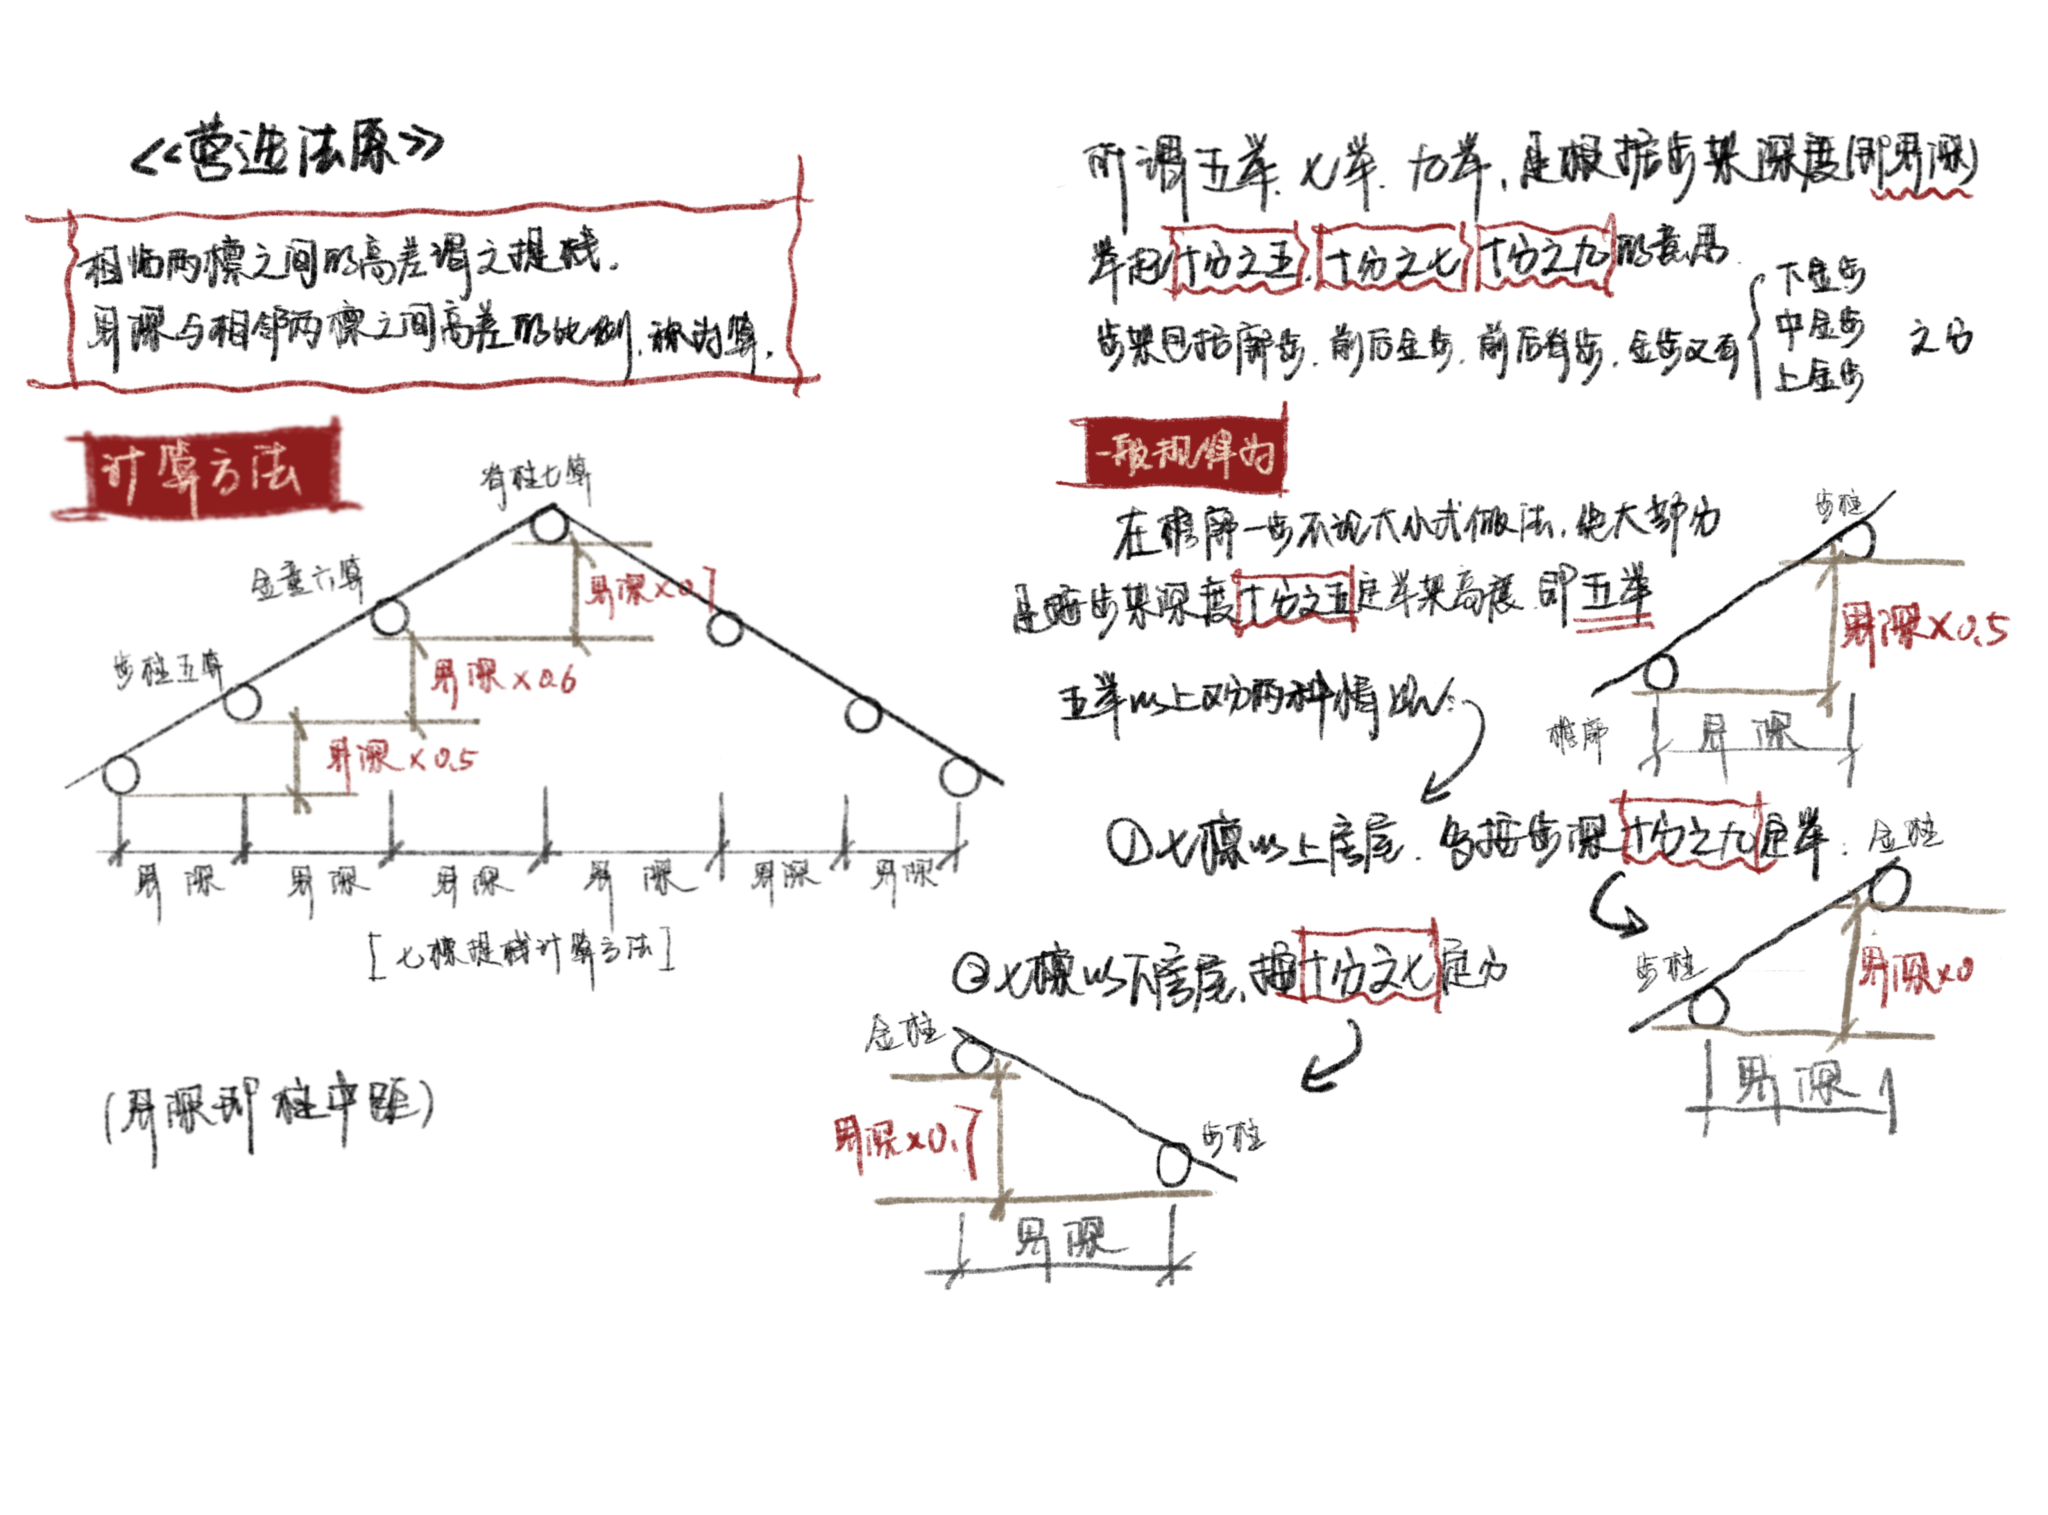 《营造法原》
相临两檩之间的高差谓之提栈.
界深与相邻两檩之间高差的比例,称为算.
计算方法
脊柱七算
金童六算
步柱五算
界深×0.7
界深×0.6
界深×0.5
界深 界深 界深 界深 界深 界深
[七檩提栈计算方法]
(界深即柱中距)
所谓五举.七举.九举,是根据步架深度(即界深)
举起十分之五.十分之七 十分之九的意思.
步架包括廊步.前后金步.前后脊步.金步又有
下金步
中金步
上金步
之分
一般规律为
在檐廊一步不论大小式做法,绝大部分
是随步架深度十分之五定举架高度.即五举
步柱
界深×0.5
檐廊
界深
五举以上又分两种情况:
①七檩以上房屋.多按步深十分之九定举.
金柱
步柱
界深×0
界深
②七檩以下房屋,按十分之七定分
金柱
界深×0.7
步柱
界深